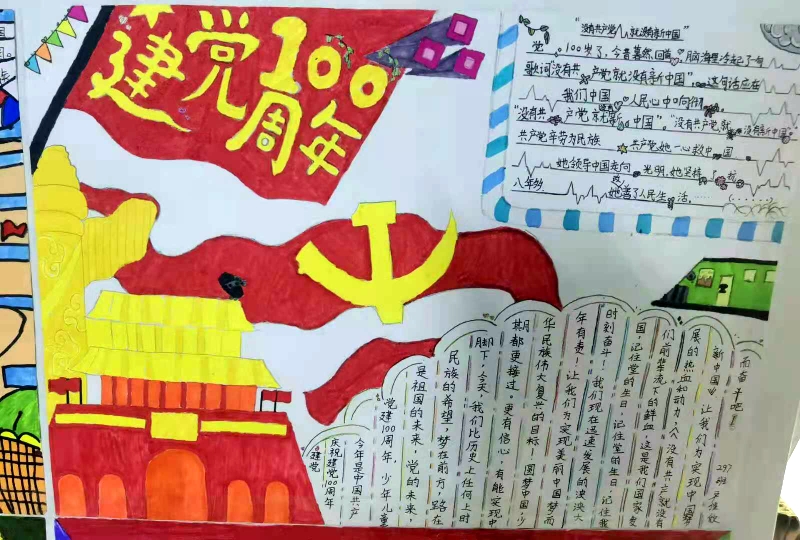 建党100
周年
"没有共产党 就没有新中国"
党,100岁了,今昔蓦然回首,脑海里浮起了一句
歌词没有共产党就没有新中国",这句话应在
我们中国人民心中回荡
"没有共产党就没有新中国","没有共产党,就没有新中国"
共产党辛劳为民族 共产党她一心救中国
她领导中国走向光明,她坚持抗战
八年多 她改善了人民生活,……(……)
庆祝建党100周年
今年是中国共产
党建100周年,少年儿童
是祖国的未来,党的未来,
民族的希望,梦在前方,路在
脚下,今天,我们比历史上任何上时
期都更接过。更有信心,有能实现中
华民族伟大复兴的目标!圆梦中国,少
年有责,让我们为实现美丽中国梦而
时刻奋斗!我们现在迅速发展的泱泱大
国,记住党的生日,记住党的生日,记住我
们前辈流下的鲜血,这是我们国家发
展的热血和动力,《没有共产党就没有
新中国》,让我们为实现中国梦
而奋斗吧!
297班